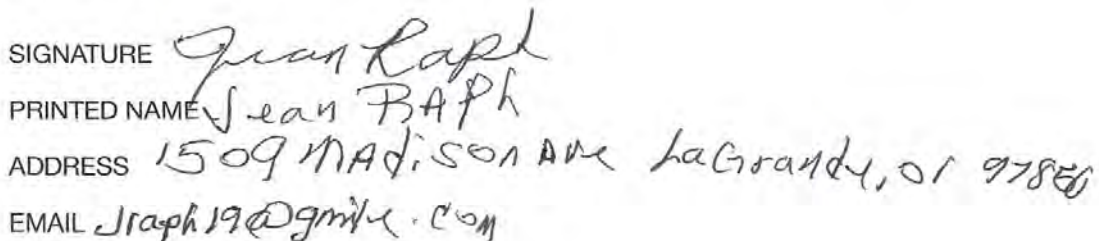 SIGNATURE Jean Raph
PRINTED NAME Jean RAph
ADDRESS 1509 MAdison Ave LaGrande, Or 97850
EMAIL Jraph19@gmile.com